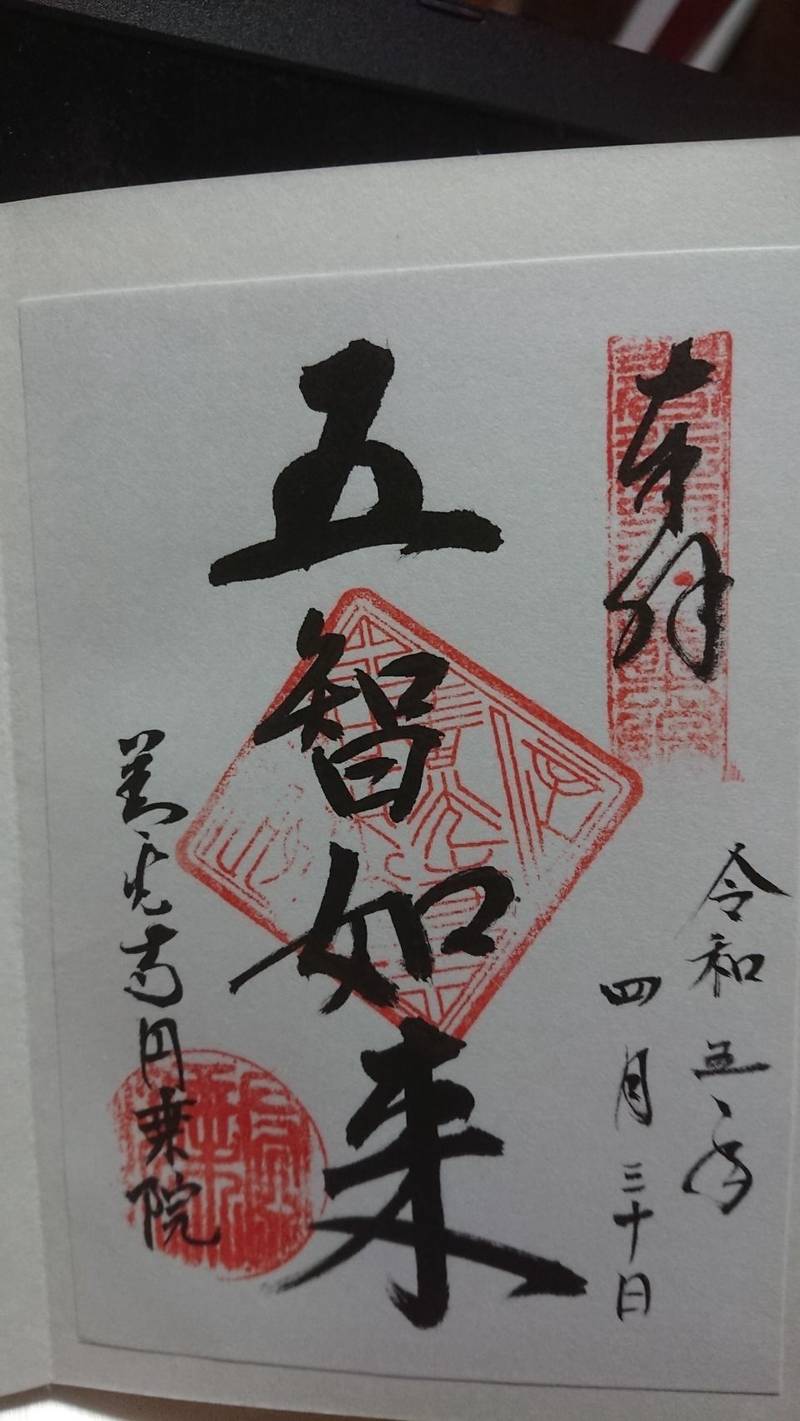 奉拝
令和五年
四月三十日
五智如来
善光寺円乗院